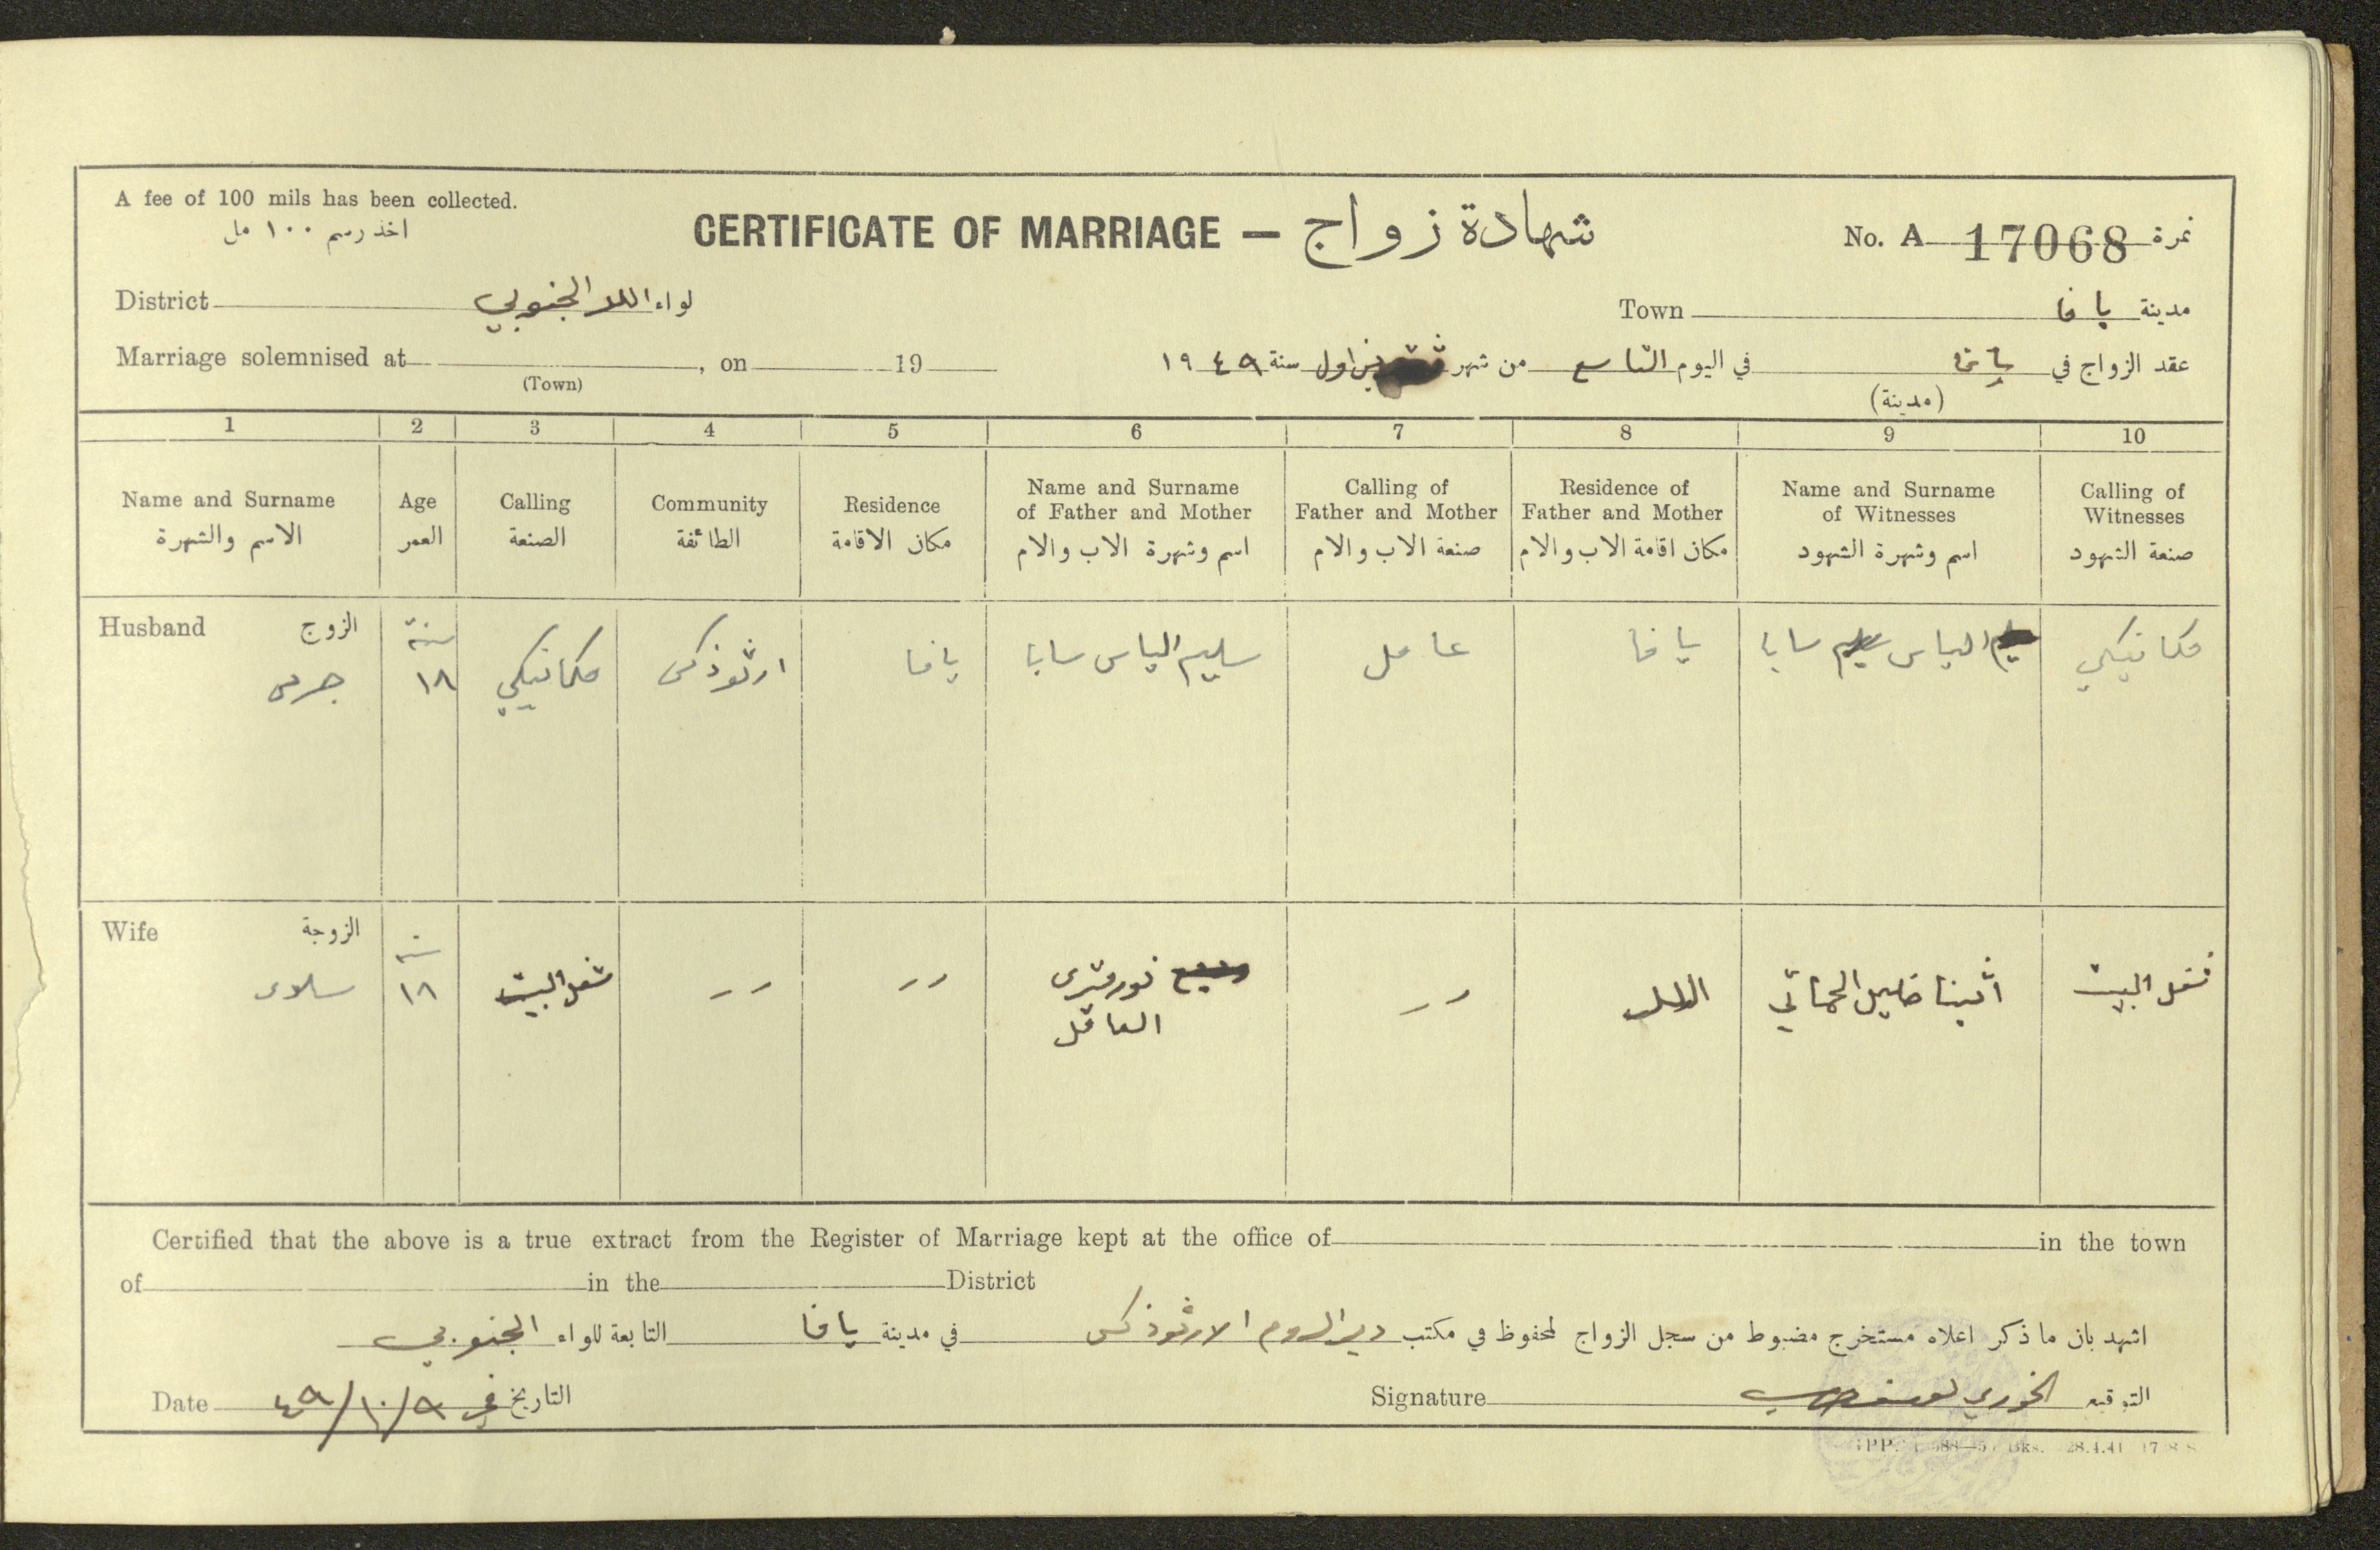 A fee of 100 mils has been collected.
اخذ رسم ١٠٠ مل
CERTIFICATE OF MARRIAGE — شهادة زواج
No. A 17068 نمرة
District لواء اللد الجنوبي
Town مدينة يافا
Marriage solemnised at , on 19
(Town)
عقد الزواج في يافا في اليوم التاسع من شهر تشرين اول سنة ١٩٤٩
(مدينة)
1 2 3 4 5 6 7 8 9 10
Name and Surname
الاسم والشهرة
Age
العمر
Calling
الصنعة
Community
الطائفة
Residence
مكان الاقامة
Name and Surname
of Father and Mother
اسم وشهرة الاب والام
Calling of
Father and Mother
صنعة الاب والام
Residence of
Father and Mother
مكان اقامة الاب والام
Name and Surname
of Witnesses
اسم وشهرة الشهود
Calling of
Witnesses
صنعة الشهود
Husband الزوج
جرجس
سنة
١٨
مكانيكي
ارثوذكس
يافا
سليم الياس سابا
عامل
يافا
الياس سليم سابا
مكانيكي
Wife الزوجة
سلوى
سنة
١٨
شغل البيت
〃
〃
العاقل
〃
خليل
شغل البيت
Certified that the above is a true extract from the Register of Marriage kept at the office of in the town
of in the District
اشهد بان ما ذكر اعلاه مستخرج مضبوط من سجل الزواج المحفوظ في مكتب دير الروم الارثوذكس في مدينة يافا التابعة للواء الجنوبي
Date ٤٩/١٠/٩ التاريخ في
Signature الخوري التوقيع
28.4.41